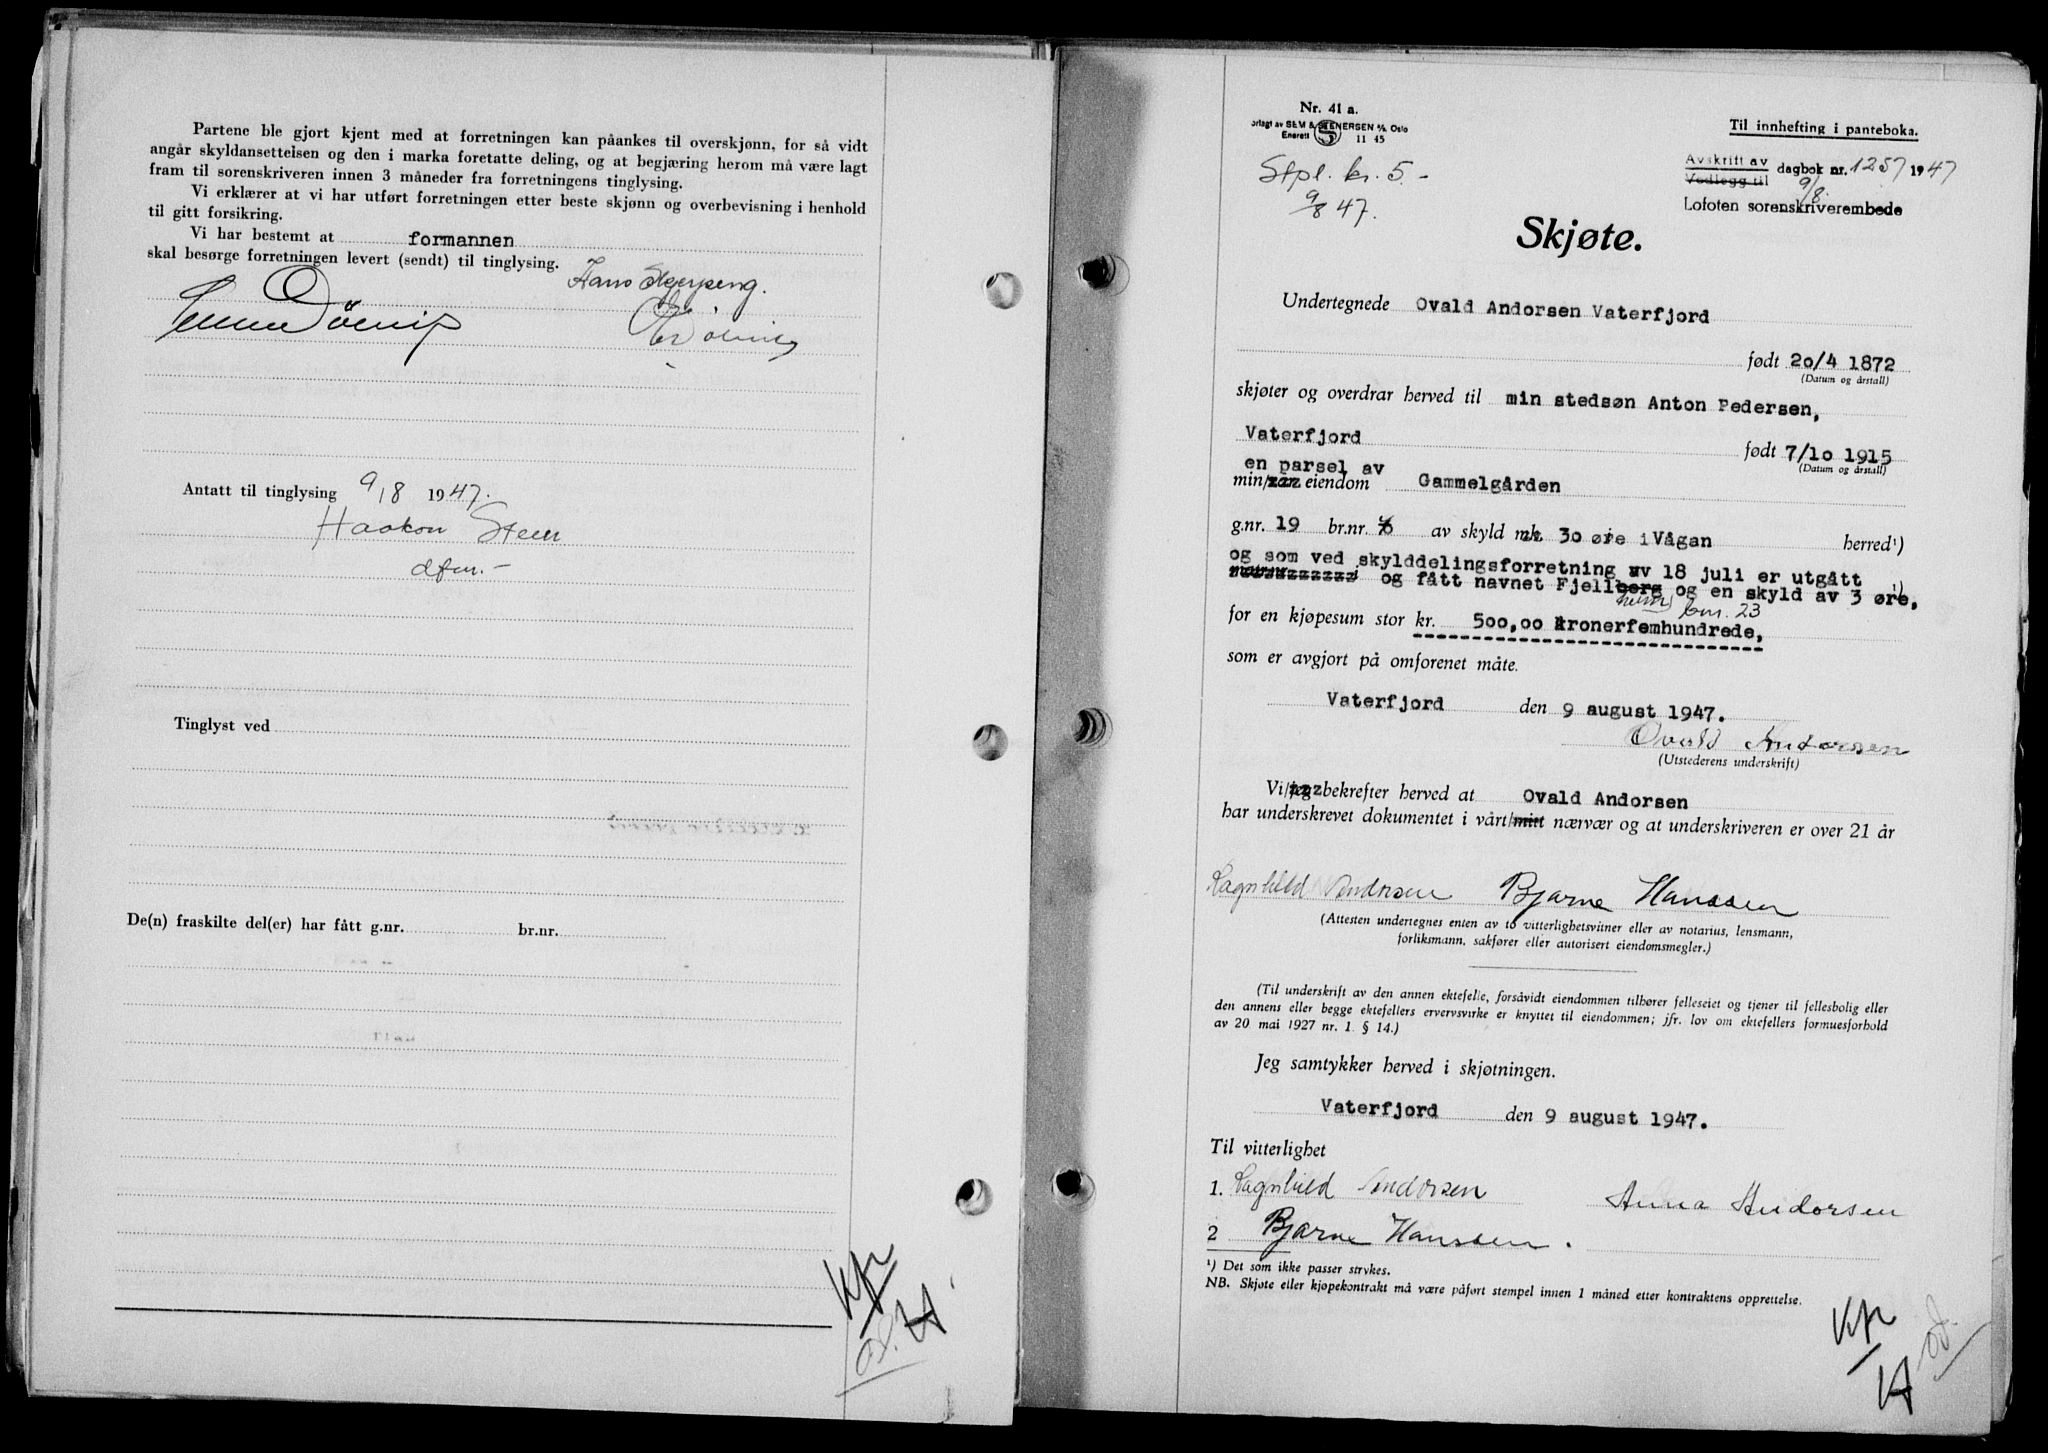 Partene ble gjort kjent med at forretningen kan påankes til overskjønn, for så vidt
angår skyldansettelsen og den i marka foretatte deling, og at begjæring herom må være lagt
fram til sorenskriveren innen 3 måneder fra forretningens tinglysing.
Vi erklærer at vi har utført forretningen etter beste skjønn og overbevisning i henhold
til gitt forsikring.
Vi har bestemt at formannen
skal besørge forretningen levert (sendt) til tinglysing.
Hans
Antatt til tinglysing 9/8 1947.
Haakon Steen
dfm.-
Tinglyst ved
De(n) fraskilte del(er) har fått g.nr. br.nr.
Kpr
H
Nr. 41 a.
orlagt av SEM & STENERSEN A/S Oslo
Enerett S 11 45
Stpl. kr. 5.-
9/8 47.
Til innhefting i panteboka.
Avskrift av
Vedlegg til
dagbok nr. 1257 1947
9/8.
Lofoten sorenskriverembede
Skjøte.
Undertegnede Ovald Andorsen Vaterfjord
født 20/4 1872
(Datum og årstall)
skjøter og overdrar herved til min stedsøn Anton Pedersen,
Vaterfjord
født 7/10 1915
(Datum og årstall)
en parsel av
min/ eiendom Gammelgården
g.nr. 19 br.nr. av skyld mk 30 øre i Vågan herred¹)
og som ved skylddelingsforretning av 18 juli er utgått
og fått navnet Fjellberg og en skyld av 3 øre, ¹)
heim bnr. 23
for en kjøpesum stor kr. 500,00 kronerfemhundrede,
som er avgjort på omforenet måte.
Vaterfjord den 9 august 1947.
Ovald Andorsen
(Utstederens underskrift)
Vi/jeg bekrefter herved at Ovald Andorsen
har underskrevet dokumentet i vårt/mitt nærvær og at underskriveren er over 21 år
Ragnhild Andorsen Bjarne Hanssen
(Attesten undertegnes enten av to vitterlighetsvitner eller av notarius, lensmann,
forliksmann, sakfører eller autorisert eiendomsmegler.)
(Til underskrift av den annen ektefelle, forsåvidt eiendommen tilhører felleseiet og tjener til fellesbolig eller
den annens eller begge ektefellers ervervsvirke er knyttet til eiendommen; jfr. lov om ektefellers formuesforhold
av 20 mai 1927 nr. 1. § 14.)
Jeg samtykker herved i skjøtningen.
Vaterfjord den 9 august 1947.
Til vitterlighet
1. Ragnhild Andorsen Anna Andorsen
2 Bjarne Hanssen.
¹) Det som ikke passer strykes.
NB. Skjøte eller kjøpekontrakt må være påført stempel innen 1 måned etter kontraktens opprettelse.
Kpr
H